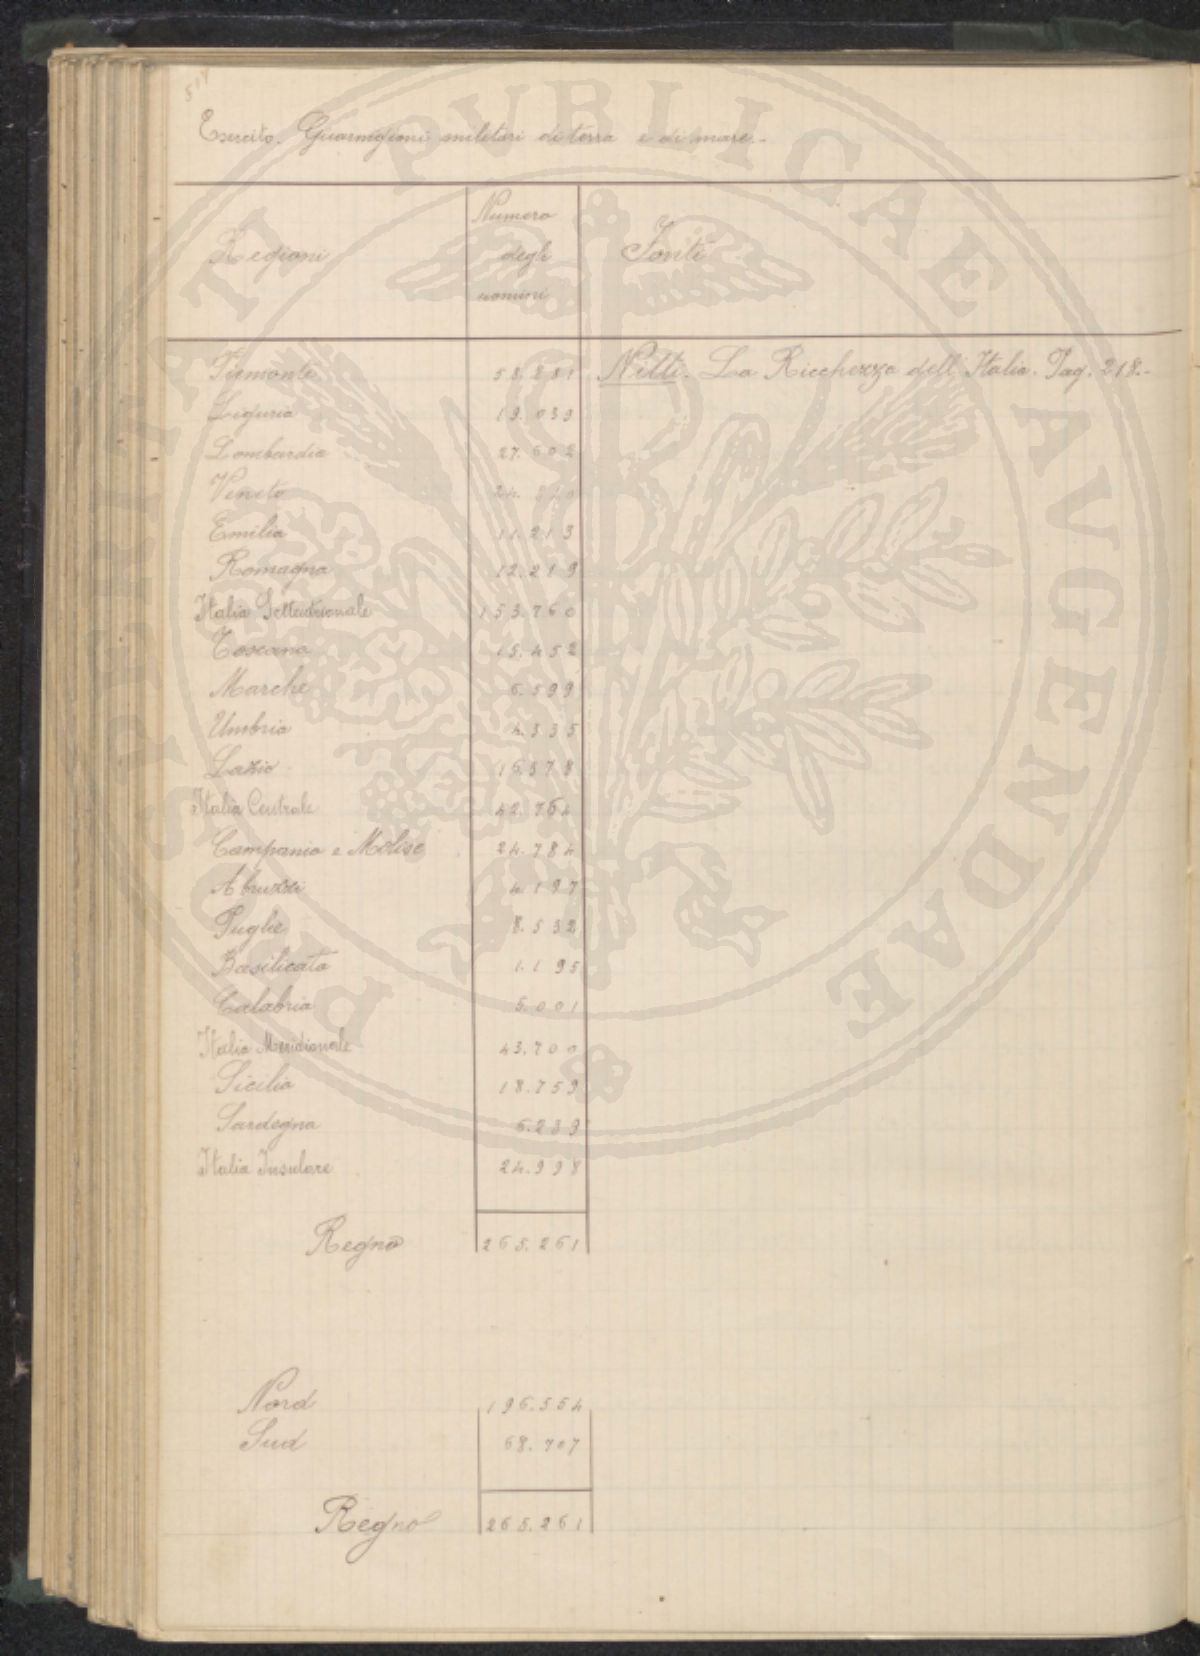 507
Esercito. Guarnigioni militari di terra e di mare.-
Regioni
Numero
degli
uomini
Fonti
Piemonte 58.281 Nitti. La Ricchezza dell'Italia. Pag. 218.-
Liguria 19.039
Lombardia 27.602
Veneto
Emilia 11.213
Romagna 12.219
Italia Settentrionale 153.790
Toscana 15.452
Marche 6.599
Umbria 4.335
Lazio 16.378
Italia Centrale 42.764
Campania e Molise 24.784
Abruzzi 4.197
Puglie 8.532
Basilicata 1.195
Calabria 5.001
Italia Meridionale 43.709
Sicilia 18.759
Sardegna 6.239
Italia Insulare 24.998
Regno 265.261
Nord 196.554
Sud 68.707
Regno 265.261
PROSPERITATI PVBLICAE AVGENDAE